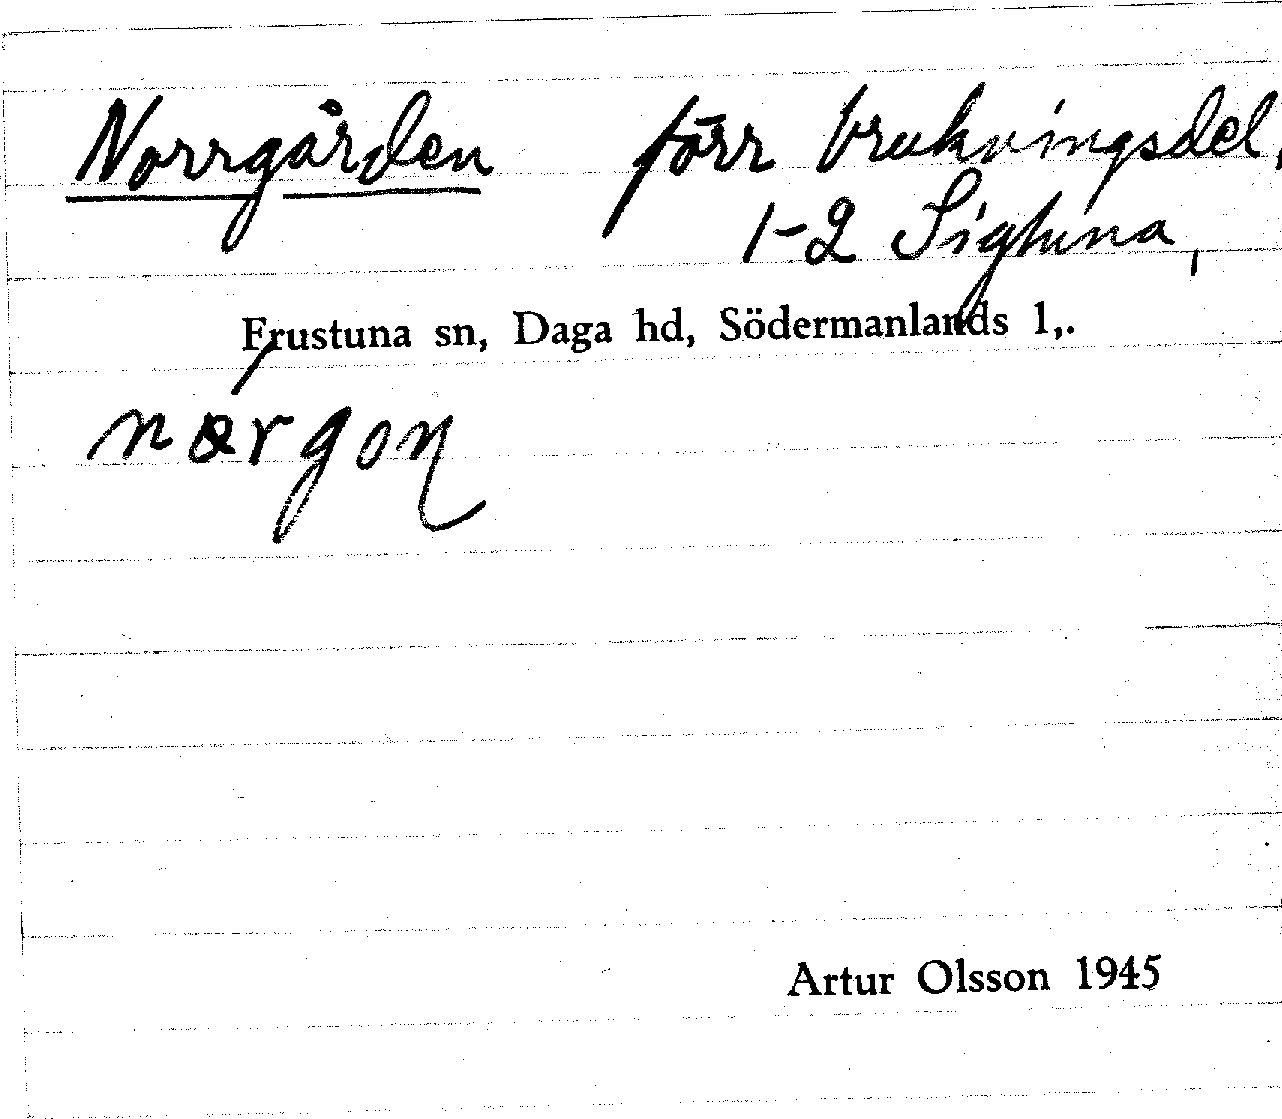 Norrgården förr brukningsdel,
1-2 Sightuna,
Frustuna sn, Daga hd, Södermanlands l,.
Artur Olsson 1945